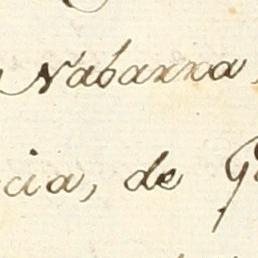 Nabarra
cia, de